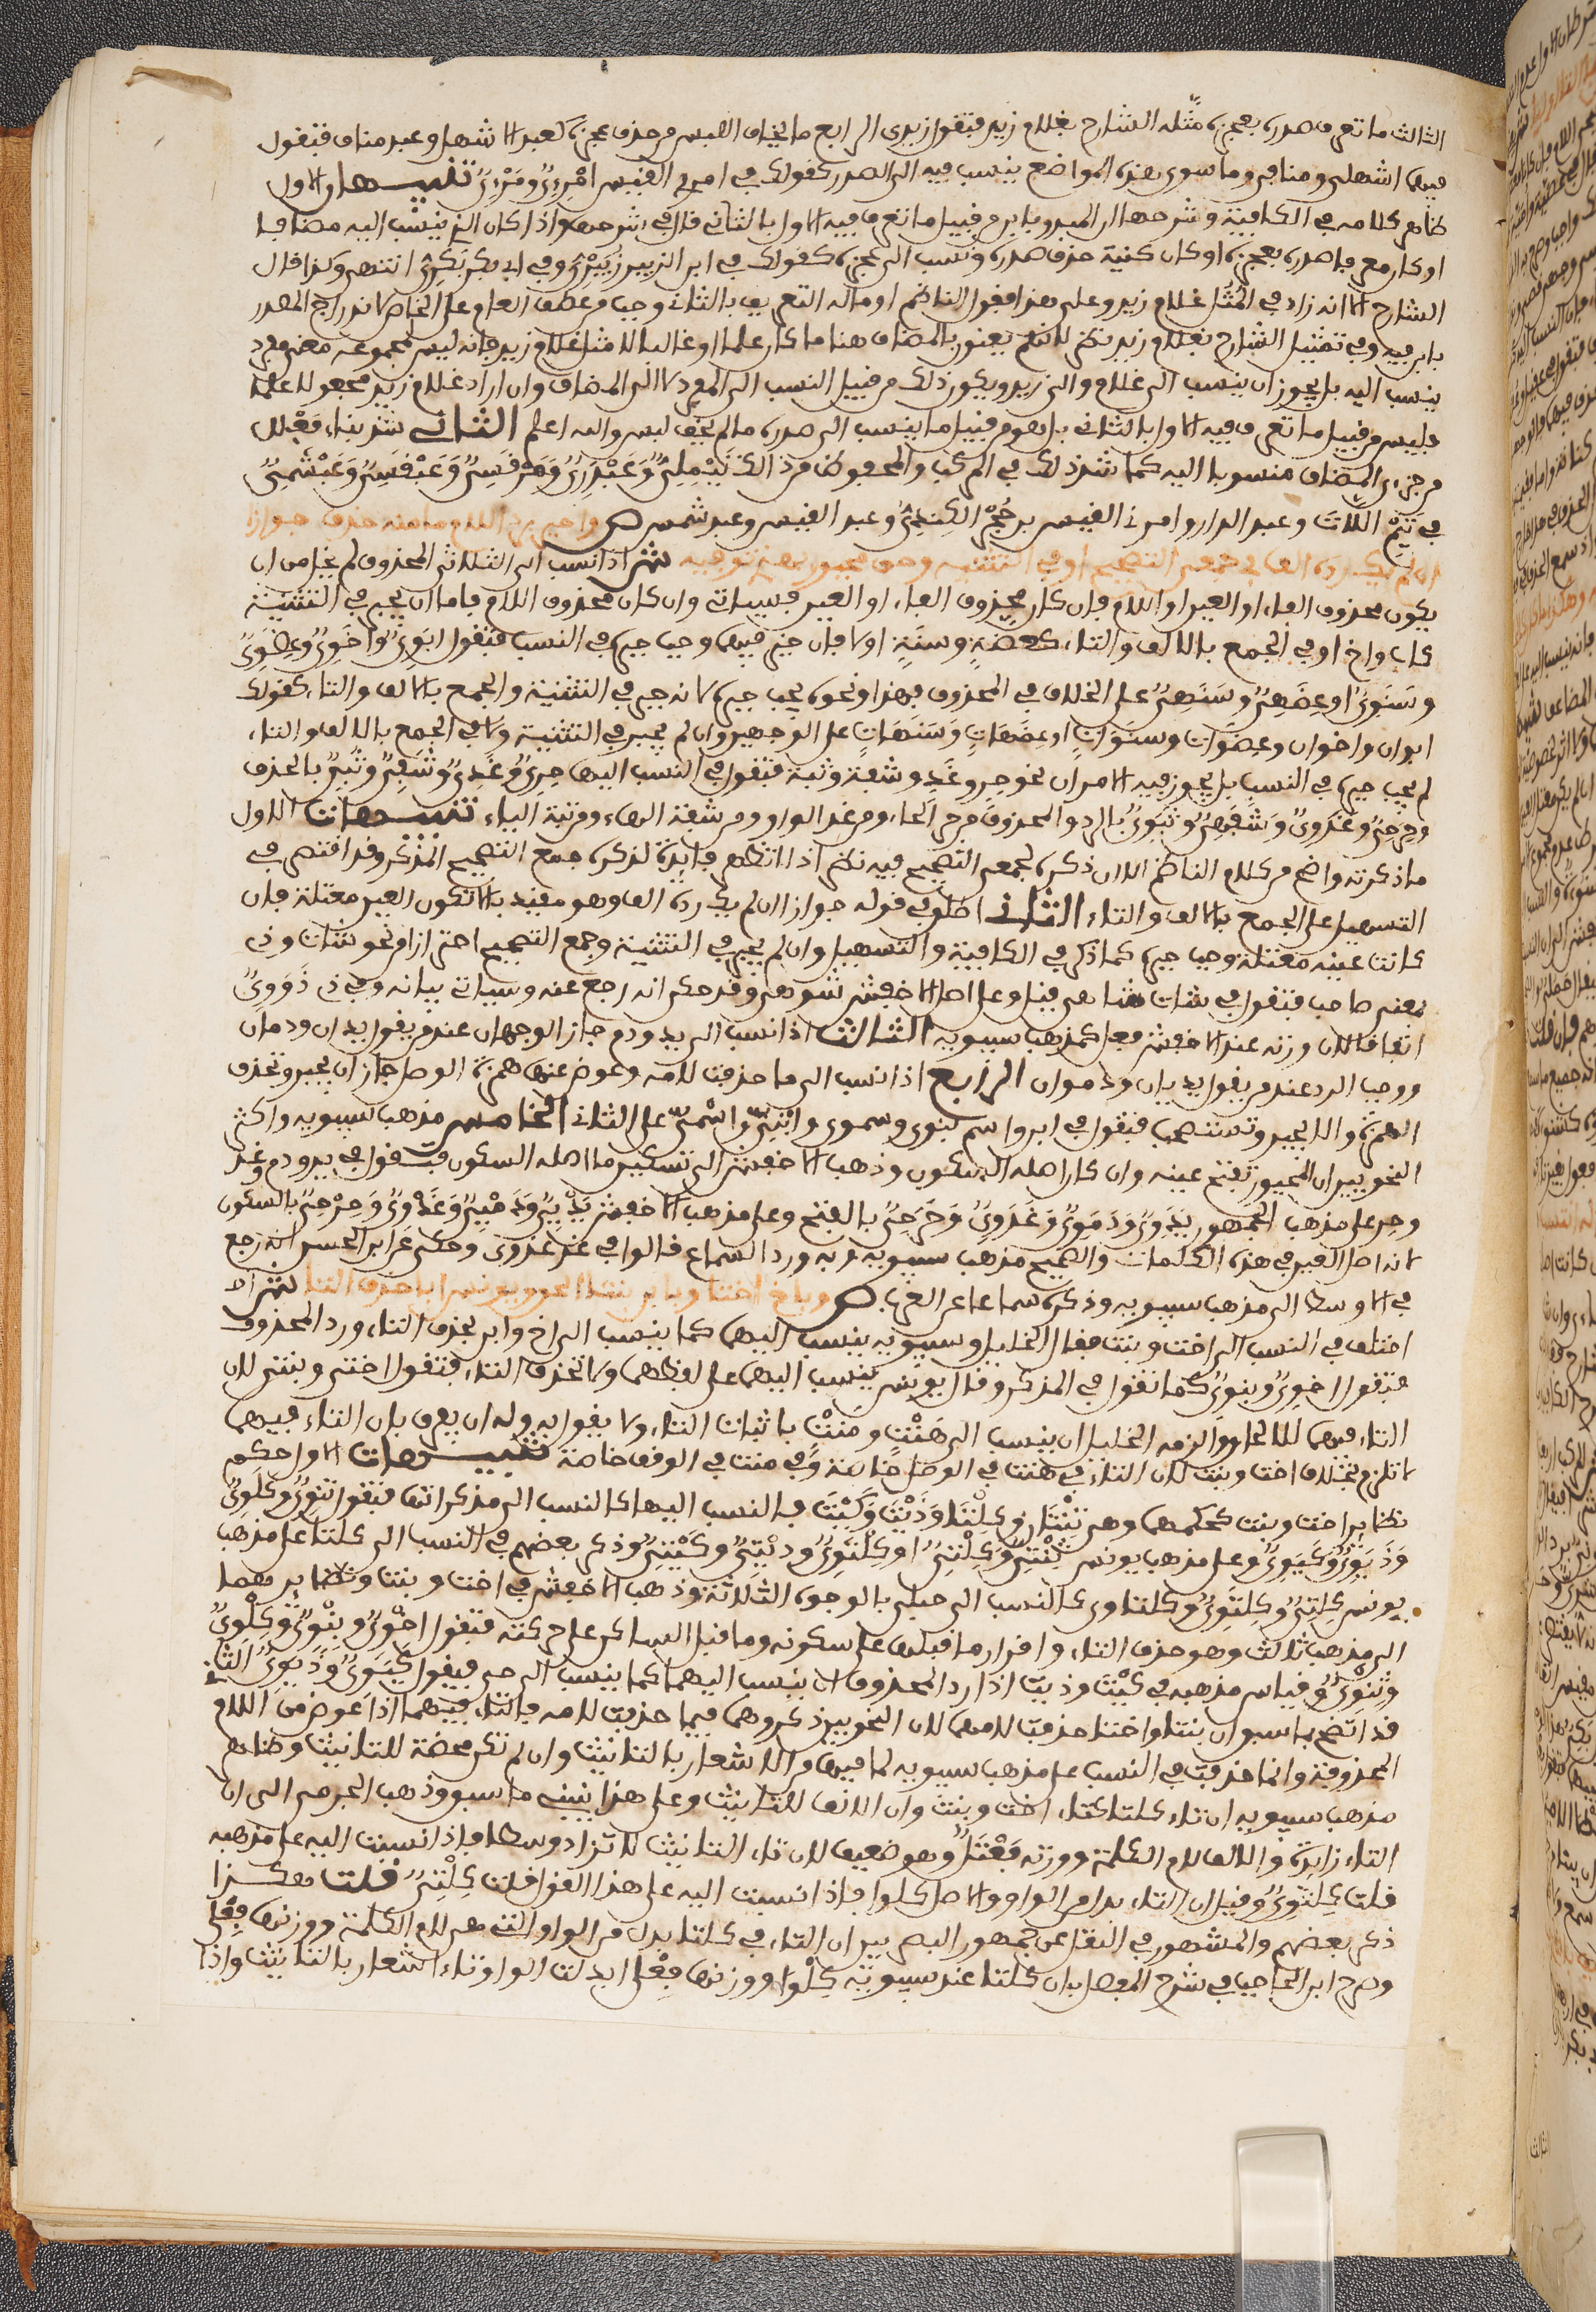 الثالث ما تعرف صدره بعجزه مثله الشارح بغلام زيد فتقول زيدي الرابع ما يخاف اللبس من حذف عجزه كعبد الاشهل وعبد مناف فتقول
فيهما اشهلي ومنافي وما سوى هذه المواضع ينسب فيه الى الصدر كقولك في امرئ القيس امرئي ومرئي تنبيهان الاول
ظاهر كلامه في الكافية وشرحها ان المبدوّ بابن من قبيل ما تعرف فيه الاول بالثاني قال في شرحها واذا كان الذي ينسب اليه مضافا
او كان معرفا صدره بعجزه او كان كنية حذف صدره ونسب الى عجزه كقولك في ابن الزبير زُبَيْرِيّ وفي ابي بكر بَكْرِيّ انتهى وكذا قال
الشارح الا انه زاد في المُثُل غلام زيد وعلى هذا فقول الناظم او ما له التعريف بالثاني وجب من عطف العام على الخاص لاندراج المصدر
بابن فيه وفي تمثيل الشارح بغلام زيد نظر لانهم يعنون بالمضاف هنا ما كان علما او غالبا لا مثل غلام زيد فانه ليس لمجموعه معنى مفرد
ينسب اليه بل يجوز ان ينسب الى غلام والى زيد ويكون ذلك من قبيل النسب الى المفرد لا الى المضاف وان اراد غلام زيد مجعولا علما
فليس من قبيل ما تعرف فيه الاول بالثاني بل هو من قبيل ما ينسب الى صدره ما لم يخف لبس والله اعلم الثاني شذ بناء فَعْلَل
من جزءي المضاف منسوبا اليه كما شذ ذلك في المركب والمحفوظ من ذلك تَيْمَلِيّ وَعَبْدَرِيّ وَمَرْقَسِيّ وَعَبْقَسِيّ وَعَبْشَمِيّ
في تَيْم اللَّات وعبد الدار وامرئ القيس بن حُجْر الكِنْدِيّ وعبد القيس وعبد شمس ص واجبر برد اللام ما منه حذف جوازا
ان لم يك رده الف في جمعي التصحيح او في التثنيه وحق مجبور بهذي توفيه ش اذا نسب الى الثلاثي المحذوف لم يخل من ان
يكون محذوف الفاء او العين او اللام فان كان محذوف الفاء او العين فسياتي وان كان محذوف اللام فاما ان يجبر في التثنية
كاب واخ او في الجمع بالالف والتاء كعضة وسنة او لا فان جبر فيهما وجب جبره في النسب فتقول ابَوِيّ وأخَوِيّ وعِضَوِيّ
وسَنَوِيّ او عِضَهِيّ وسَنَهِيّ على الخلاف في المحذوف فهذا ونحوه يجب جبره لانه جبر في التثنية والجمع بالالف والتاء كقولك
ابوان واخوان وعِضَوات وسَنَوَات او عِضَهَاتٍ وَسَنَهَاتٍ على الوجهين وان لم يجبر في التثنية ولا في الجمع بالالف والتاء
لم يجب جبره في النسب بل يجوز فيه الامران نحو حِر وغَدٍ وشفة وثبة فتقول في النسب اليها حِرِيّ وغَدِيّ وشَفِيّ وثُبِيّ بالحذف
وحِرَحِيّ وغَدَوِيّ وَشَفَهِيّ وثُبَوِيّ بالرد والمحذوف من حر الحاء ومن غد الواو ومن شفة الهاء ومن ثبة الياء تنبيهات الاول
ما ذكرته واضح من كلام الناظم الا ان ذكره لجمعي التصحيح فيه نظر اذ لا تظهر فايدة لذكره جمع التصحيح المذكر وقد اقتصر في
التسهيل على الجمع بالالف والتاء الثاني اطلق في قوله جوازا ان لم يك رده الف وهو مقيد بالا تكون العين معتلة فان
كانت عينه معتلة وجب جبره كما ذكر في الكافية والتسهيل وان لم يجبر في التثنية وجمع التصحيح احترازا من نحو شاة وذي
بمعنى صاحب فتقول في شاة شاهي قيل وعلى اصل الاخفش شوهي وقد حكي انه رجع عنه وسياتي بيانه وفي ذي ذَوَوِيّ
اتفاقا لان وزنه عند الاخفش فعل كمذهب سيبويه الثالث اذا نسب الى يد ودم جاز الوجهان عند من يقول يدان ودمان
ووجب الرد عند من يقول يديان ودموان الرابع اذا نسب الى ما حذفت لامه وعوض عنها همزة الوصل جاز ان يجبر وتحذف
الهمزة والا يجبر وتستصحب فتقول في ابن واسم بنوي وسموي وابْنِيّ واسْمِيّ على الثاني الخامس مذهب سيبويه واكثر
النحويين ان المجبور تفتح عينه وان كان اصله السكون وذهب الاخفش الى تسكين ما اصله السكون فتقول في يد ودم وغد
وحر على مذهب الجمهور يَدَوِيّ وَدَمَوِيّ وَغَدَوِيّ وَحِرَحِيّ بالفتح وعلى مذهب الاخفش يَدْيِيّ وَدَمْيِيّ وَغَدْوِيّ وَحِرْحِيّ بالسكون
لانه اصل العين في هذه الكلمات والصحيح مذهب سيبويه وبه ورد السماع قالوا في غد غدوي وحكي عن ابي الحسن انه رجع
في الاوسط الى مذهب سيبويه وذكره سماعا عن العرب ص وباخ اختا وبابن بنتا الحق ويونس ابى حذف التا ش
اختلف في النسب الى اخت وبنت فقال الخليل وسيبويه ينسب اليهما كما ينسب الى اخ وابن بحذف التاء ورد المحذوف
فتقول اخوِيّ وبنوِيّ كما تقول في المذكر وقال يونس ينسب اليهما على لفظهما ولا تحذف التاء فتقول اختي وبنتي لان
التاء فيهما للالحاق والزمه الخليل ان ينسب الى هَنْتٍ ومَنْتٍ باثبات التاء ولا يقول به وله ان يفرق بان التاء فيهما
لا تلزم بخلاف اخت وبنت لان التاء في هنت في الوصل خاصة وفي منت في الوقف خاصة تنبيهات الاول حكم
نظاير اخت وبنت كحكمهما وهي ثِنْتَان وكِلْتَا وَذَيْتَ وَكَيْتَ فالنسب اليها كالنسب الى مذكراتها فتقول ثَنَوِيّ وكِلَوِيّ
وَذَيَوِيّ وَكَيَوِيّ وعلى مذهب يونس ثِنْتِيّ وَكِلْتِيّ او كِلْتَوِيّ وذَيْتِيّ وكَيْتِيّ وذكر بعضهم في النسب الى كلتا على مذهب
يونس كِلْتِيّ وكِلْتَوِيّ وكلتاوي كالنسب الى حبلى بالوجوه الثلاثة وذهب الاخفش في اخت وبنت ونظايرهما
الى مذهب ثالث وهو حذف التاء واقرار ما قبلها على سكونه وما قبل الساكن على حركته فتقول اخْوِيّ وبِنْوِيّ وكِلْوِيّ
وثِنْوِيّ وقياس مذهبه في كَيْتَ وذَيْتَ اذا رد المحذوف ان ينسب اليهما كما ينسب الى حي فيقول كَيَوِيّ وذَيَوِيّ الثاني
قد اتضح بما سبق ان بنتا واختا حذفت لامهما لان النحويين ذكروهما فيما حذفت لامه فالتاء فيهما اذا عوض من اللام
المحذوفة وانما حذفت في النسب على مذهب سيبويه لما فيها من الاشعار بالتانيث وان لم تكن محضة للتانيث وظاهر
مذهب سيبويه ان تاء كلتا كتاء اخت وبنت وان الالف للتانيث وعلى هذا ينبني ما سبق وذهب الجرمي الى ان
التاء زايدة والالف لام الكلمة ووزنه فِعْتَل وهو ضعيف لان تاء التانيث لا تزاد وسطا فاذا نسبت اليه على مذهبه
قلت كِلْتَوِيّ وقيل ان التاء بدل من الواو والاصل كلوا فاذا نسبت اليه على هذا القول قلت كِلْتِيّ قلت هكذا
ذكر بعضهم والمشهور في النقل عن جمهور البصريين ان التاء في كلتا بدل من الواو التي هي لام الكلمة ووزنها فِعْلى
وصرح ابن الحاجب في شرح المفصل بان كلتا عند سيبويه كِلْوا ووزنها فِعْلى ابدلت الواو تاء اشعارا بالتانيث واذا